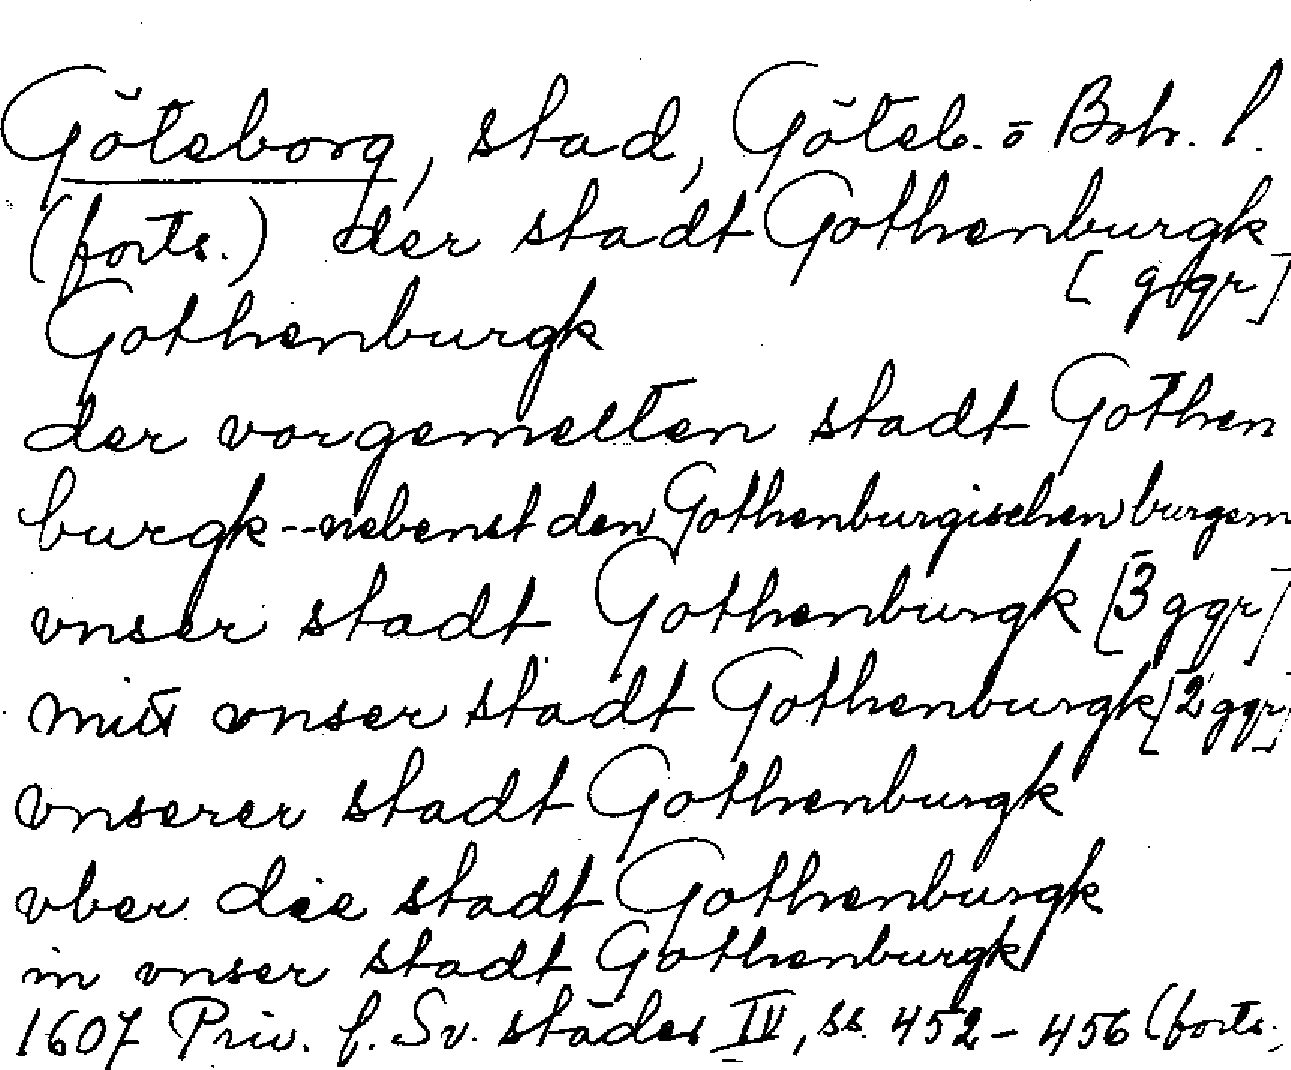 Göteborg, stad, Göteb. o Boh. l.
(forts.) der stadt Gothenburgk
[ ggr]
Gothenburgk
der vorgemelten stadt Gothen
burgk -- nebenst den Gothenburgischen burgern
vnser stadt Gothenburgk [3 ggr]
mitt vnser stadt Gothenburgk [2 ggr]
vnserer stadt Gothenburgk
vber die stadt Gothenburgk
in vnser stadt Gothenburgk
1607 Priv. f. Sv. städer IV, ss. 452-456 (forts.)